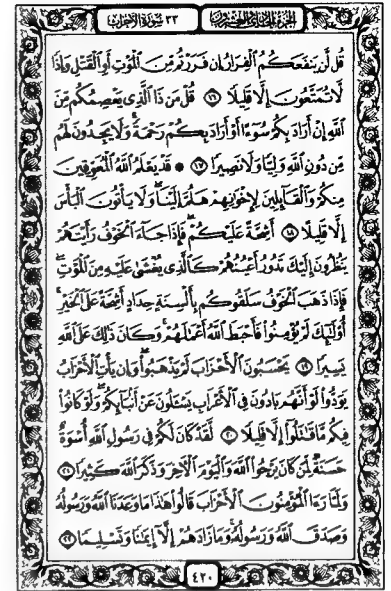 الجزء الحادي والعشرون
٣٣ سورة الأحزاب
قُل لَّن يَنفَعَكُمُ ٱلْفِرَارُ إِن فَرَرْتُم مِّنَ ٱلْمَوْتِ أَوِ ٱلْقَتْلِ وَإِذًا
لَّا تُمَتَّعُونَ إِلَّا قَلِيلًا ١٦ قُلْ مَن ذَا ٱلَّذِى يَعْصِمُكُم مِّنَ
ٱللَّهِ إِنْ أَرَادَ بِكُمْ سُوٓءًا أَوْ أَرَادَ بِكُمْ رَحْمَةً وَلَا يَجِدُونَ لَهُم
مِّن دُونِ ٱللَّهِ وَلِيًّا وَلَا نَصِيرًا ١٧ ۞ قَدْ يَعْلَمُ ٱللَّهُ ٱلْمُعَوِّقِينَ
مِنكُمْ وَٱلْقَآئِلِينَ لِإِخْوَٰنِهِمْ هَلُمَّ إِلَيْنَا وَلَا يَأْتُونَ ٱلْبَأْسَ
إِلَّا قَلِيلًا ١٨ أَشِحَّةً عَلَيْكُمْ فَإِذَا جَآءَ ٱلْخَوْفُ رَأَيْتَهُمْ
يَنظُرُونَ إِلَيْكَ تَدُورُ أَعْيُنُهُمْ كَٱلَّذِى يُغْشَىٰ عَلَيْهِ مِنَ ٱلْمَوْتِ
فَإِذَا ذَهَبَ ٱلْخَوْفُ سَلَقُوكُم بِأَلْسِنَةٍ حِدَادٍ أَشِحَّةً عَلَى ٱلْخَيْرِ
أُو۟لَٰٓئِكَ لَمْ يُؤْمِنُوا۟ فَأَحْبَطَ ٱللَّهُ أَعْمَٰلَهُمْ وَكَانَ ذَٰلِكَ عَلَى ٱللَّهِ
يَسِيرًا ١٩ يَحْسَبُونَ ٱلْأَحْزَابَ لَمْ يَذْهَبُوا۟ وَإِن يَأْتِ ٱلْأَحْزَابُ
يَوَدُّوا۟ لَوْ أَنَّهُم بَادُونَ فِى ٱلْأَعْرَابِ يَسْـَٔلُونَ عَنْ أَنۢبَآئِكُمْ وَلَوْ كَانُوا۟
فِيكُم مَّا قَٰتَلُوٓا۟ إِلَّا قَلِيلًا ٢٠ لَّقَدْ كَانَ لَكُمْ فِى رَسُولِ ٱللَّهِ أُسْوَةٌ
حَسَنَةٌ لِّمَن كَانَ يَرْجُوا۟ ٱللَّهَ وَٱلْيَوْمَ ٱلْءَاخِرَ وَذَكَرَ ٱللَّهَ كَثِيرًا ٢١
وَلَمَّا رَءَا ٱلْمُؤْمِنُونَ ٱلْأَحْزَابَ قَالُوا۟ هَٰذَا مَا وَعَدَنَا ٱللَّهُ وَرَسُولُهُۥ
وَصَدَقَ ٱللَّهُ وَرَسُولُهُۥ وَمَا زَادَهُمْ إِلَّآ إِيمَٰنًا وَتَسْلِيمًا ٢٢
٤٢٠